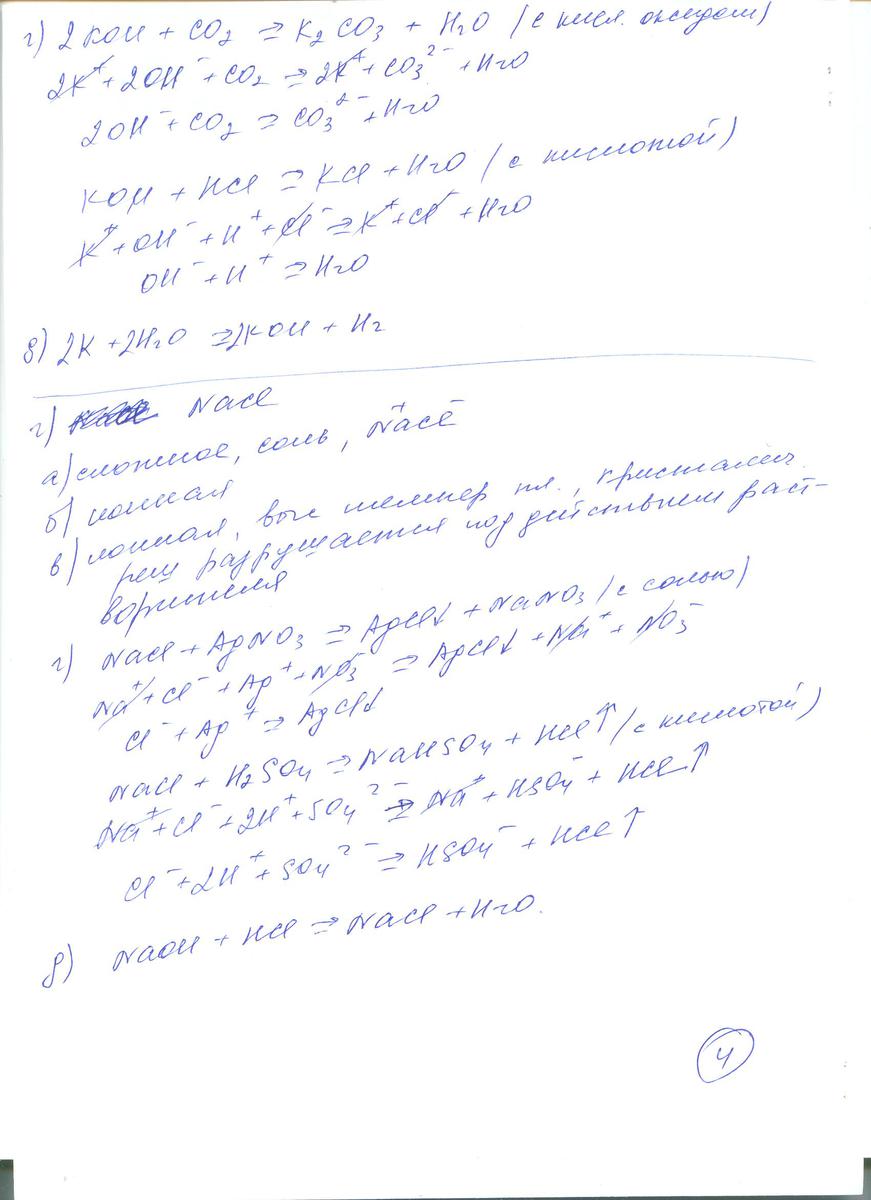 г) 2KOH + CO2 ⇒ K2CO3 + H2O (с кисл. оксидом)
2K⁺ + 2OH⁻ + CO2 ⇒ 2K⁺ + CO3²⁻ + H2O
2OH⁻ + CO2 ⇒ CO3²⁻ + H2O
KOH + HCl ⇒ KCl + H2O (с кислотой)
K⁺ + OH⁻ + H⁺ + Cl⁻ ⇒ K⁺ + Cl⁻ + H2O
OH⁻ + H⁺ ⇒ H2O
д) 2K + 2H2O ⇒ 2KOH + H2
г) NaCl
а) сложное, соль, Na⁺Cl⁻
б) ионная
в) ионная, выс темпер пл., кристаллич.
реш разрушается под действием раст-
ворителя
г) NaCl + AgNO3 ⇒ AgCl↓ + NaNO3 (с солью)
Na⁺ + Cl⁻ + Ag⁺ + NO3⁻ ⇒ AgCl↓ + Na⁺ + NO3⁻
Cl⁻ + Ag⁺ ⇒ AgCl↓
NaCl + H2SO4 ⇒ NaHSO4 + HCl↑ (с кислотой)
Na⁺ + Cl⁻ + 2H⁺ + SO4²⁻ ⇒ Na⁺ + HSO4⁻ + HCl↑
Cl⁻ + 2H⁺ + SO4²⁻ ⇒ HSO4⁻ + HCl↑
д) NaOH + HCl ⇒ NaCl + H2O.
4